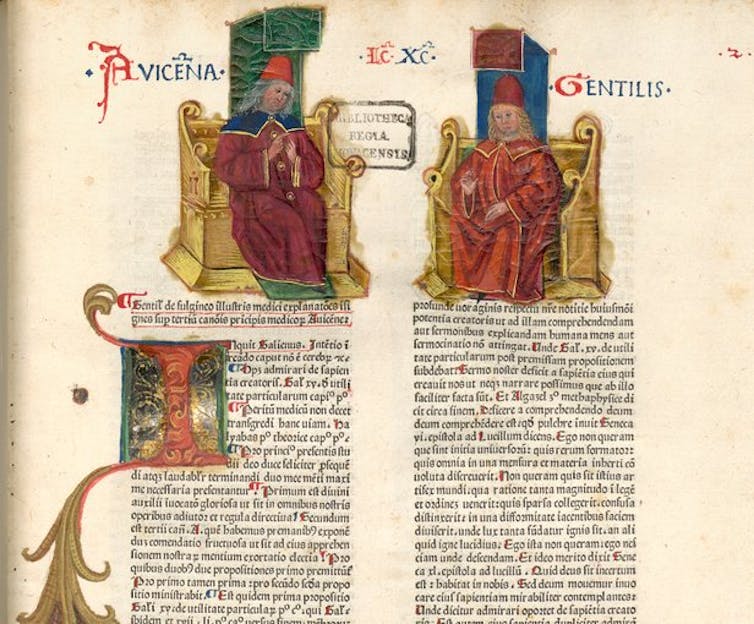 AVICENA.
·Lc̄·Xc̄·
·GENTILIS·
·2·
BIBLIOTHECA
REGIA
MONACENSIS
Gentil' de fulgineo illustris medici explanatões isi
gnes sup tertiũ canõis pricipis medicoꝝ Auicēne:
Nquit Galienus. Intētio ī
creādo caput nō ē cerebꝝ
admirari de sapien
tia creatoris. Gal' xv. d' utili
tate particularum
Peritũ medicũ non decet
transgredi hanc uiam. Ha
lyabas pº theorice
Pro principio presentis stu
dii deo duce feliciter
di atqꝫ laudabr terminandi duo mee mēti maxi
me necessaria presentantur Primum est diuini
auxilii iuocatō gloriosa ut sit in omnibus nostris
operibus adiutor et regula directiua Secundum
est tertii A. quē habemus premanibº exponē
commendatio fructuosa ut sit ad eius apprehen
sionem nostraꝝ mentium exortatio electa Pro
quibus duobꝰ due propositiones primo premittūt
Pro primo tamen prima: pro secūdo secūda propo
sitio ministrabit. Est quidem prima propositio
Gal'i xv. de utilitate particulaꝝ
profunde uor aginis respectu nr̄e notitie huiusmōi
potentia creatoris ut ad illam comprehendendam
aut sermonibus explicandam humana mens aut
sermocinatio nō attingat. Unde Gal'. xv. de utili
tate particularum post premissam propositionem
subdebat: Sermo noster deficit a sapiētia eius qui
creauit nos ut neqꝫ narrare possimus que ab illo
faciliter facta sūt. Et Algazel 3º metaphysice di
cit circa finem. Deficere a comprehendendo deum
deum comprehēdere est: qd' pulchre inuit Seneca
vi. epistola ad Lucillum dicens. Ego non queram
que sint initia uniuersoꝝ: quis rerum formator:
quis omnia in una mensura et materia inherti cō
uoluta discreuerit. Non queram quis sit istius ar
tifex mundi: qua ratione tanta magnitudo ī legē
et ordinez uenerit: quis sparsa collegerit: confusa
distinxerit: in una difformitate iacentibus faciem
diuiserit. unde lux tanta fundatur ignis sit. an ali
quid igne lucidius: Ego ista non queram: ego nes
ciam unde descendam. Et ideo merito dixit Sene
ca xl. epistola ad lucillũ. Quid deus sit incertum
est: habitat in nobis. Sed deum mouemur inuo
care eius sapientiam mirabiliter contemplantes:
Unde dicitur admirari oportet de sapiētia creato